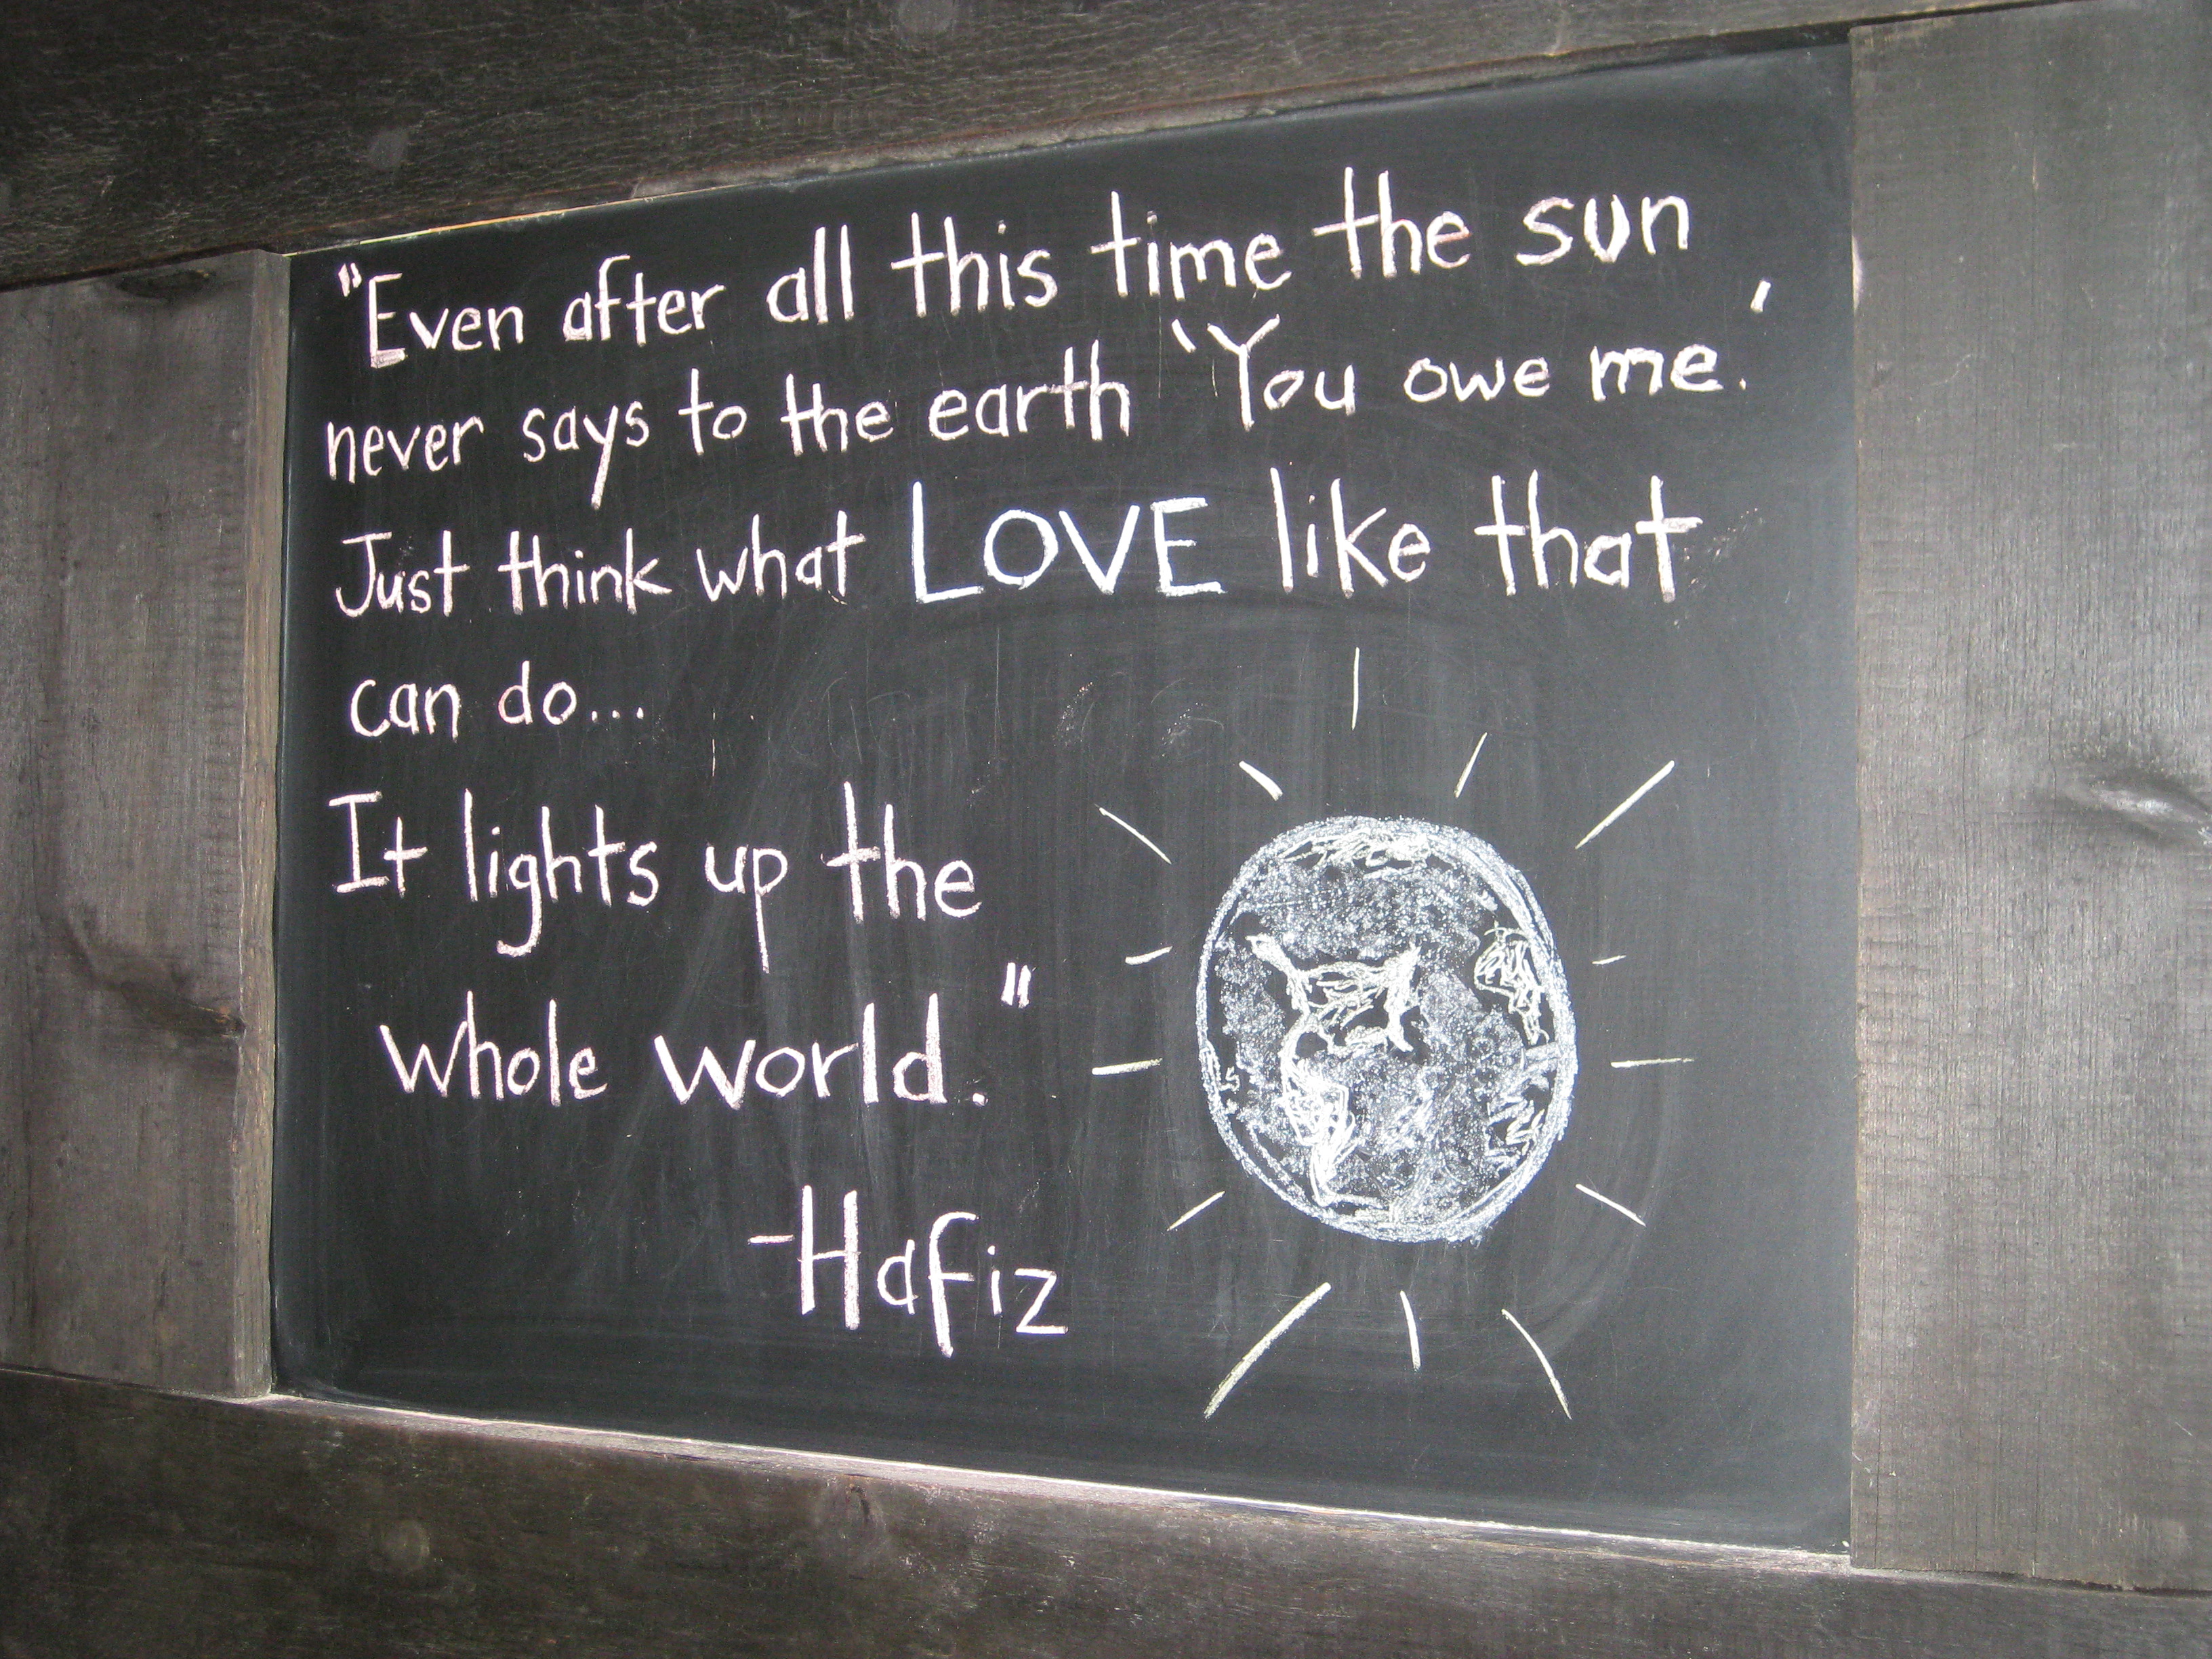 "Even after all this time the sun
never says to the earth 'You owe me.'
Just think what LOVE like that
can do...
It lights up the
whole world."
-Hafiz